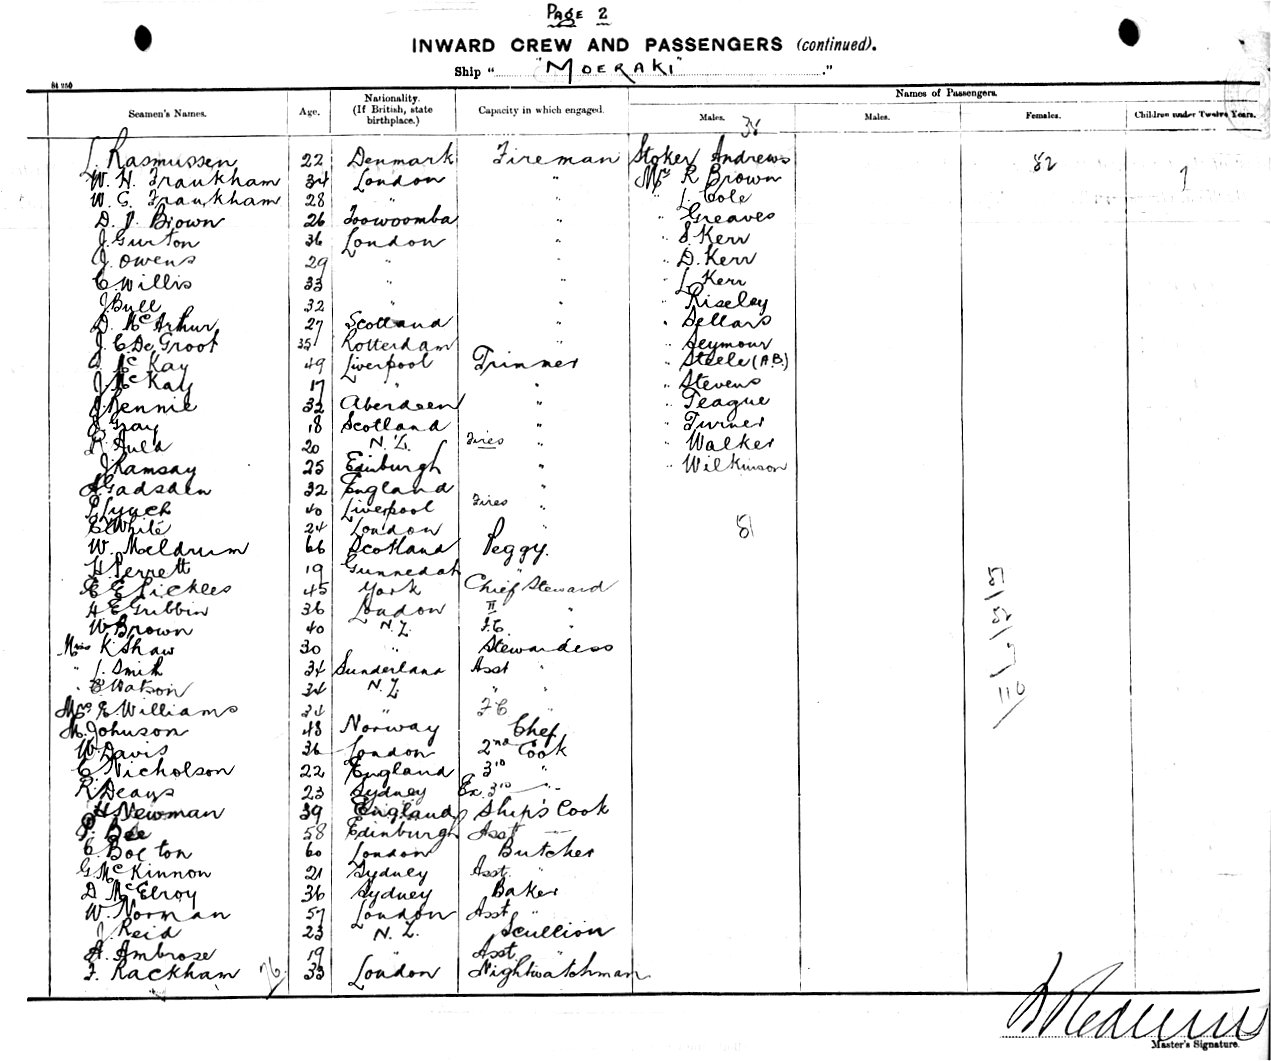 Page 2
INWARD CREW AND PASSENGERS (continued).
Ship "........"MOERAKI"........"
Names of Passengers.
Seamen's Names. Age. Nationality. (If British, state birthplace.) Capacity in which engaged. Males. Males. Females. Children under Twelve Years.
L. Rasmussen 22 Denmark Fireman Stoker Andrews 82
W. H. Fraukham 34 London " Mr R Brown
W. G. Fraukham 28 " " " L. Cole
D. J. Brown 26 Toowoomba " " Greaves
J. Gurton 36 London " " S. Kerr
J. Owens 29 " " " D. Kerr
C. Willis 33 " " " L. Kerr
J. Bull 32 " " " Riseley
D. McArthur 27 Scotland " " Sellars
J. C De Groot 35 Rotterdam " " Seymour
McKay 49 Liverpool Trimmer " Steele (A.B.)
J. McKay 17 " " " Stevens
J. Rennie 32 Aberdeen " " Teague
J. Gray 18 Scotland " " Turner
R. Auld 20 N.Z. Fires " " Walker
J. Ramsay 25 Edinburgh " " Wilkinson
A. Gadsden 32 England "
P. Lynch 40 Liverpool Fires "
E. White 24 London " 81
W. Meldrum 66 Scotland Peggy.
H. Perrett 19 Gunnedah "
E. E. Pickles 45 York Chief Steward
H. E. Gribbin 36 London II "
W. Brown 40 N.Z. "
Miss K. Shaw 30 " Stewardess
" L. Smith 34 Sunderland Asst "
" E Watson 34 N.Z. " "
Mrs E Williams 34 " "
M. Johnson 48 Norway Chef
W. Davis 36 London 2nd Cook
C. Nicholson 22 England 3rd "
R. Deans 23 Sydney Ex. 3rd "
H. Newman 39 England Ship's Cook
P. Bee 58 Edinburgh Asst
C. Bolton 60 London Butcher
G. McKinnon 21 Sydney Asst. "
D. McElroy 36 Sydney Baker
W. Norman 57 London Asst "
J. Reid 23 N.Z. Scullion
A. Ambrose 19 " Asst "
F. Rackham 76 33 London Nightwatchman
Master's Signature.